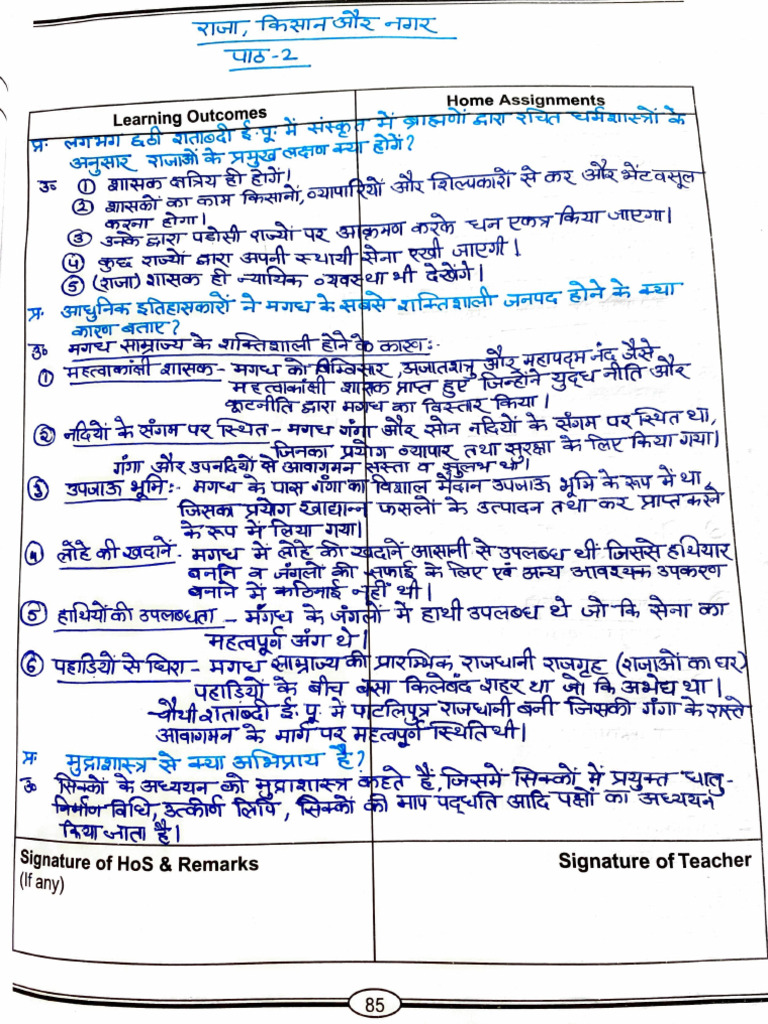 राजा, किसान और नगर
पाठ-2
Learning Outcomes
Home Assignments
प्र. लगभग छठी शताब्दी ई.पू. में संस्कृत में ब्राह्मणों द्वारा रचित धर्मशास्त्रों के
अनुसार राजाओं के प्रमुख लक्षण क्या होगें?
उ० ① शासक क्षत्रिय ही होगें।
② शासकों का काम किसानों, व्यापारियों और शिल्पकारों से कर और भेंट वसूल
करना होगा।
③ उनके द्वारा पडोसी राज्यों पर आक्रमण करके धन एकत्र किया जाएगा।
④ कुछ राज्यों द्वारा अपनी स्थायी सेना रखी जाएगी।
⑤ (राजा) शासक ही न्यायिक व्यवस्था भी देखेंगे।
प्र. आधुनिक इतिहासकारों ने मगध के सबसे शक्तिशाली जनपद होने के क्या
कारण बताए?
उ० मगध साम्राज्य के शक्तिशाली होने के कारण:-
① महत्वाकांक्षी शासक - मगध को बिम्बिसार, अजातशत्रु और महापद्म नंद जैसे
महत्वाकांक्षी शासक प्राप्त हुए जिन्होंने युद्ध नीति और
कूटनीति द्वारा मगध का विस्तार किया।
② नदियों के संगम पर स्थित - मगध गंगा और सोन नदियों के संगम पर स्थित था,
जिनका प्रयोग व्यापार तथा सुरक्षा के लिए किया गया।
गंगा और उपनदियों से आवागमन सस्ता व सुलभ था।
③ उपजाऊ भूमि:- मगध के पास गंगा का विशाल मैदान उपजाऊ भूमि के रूप में था,
जिसका प्रयोग खाद्यान्न फसलों के उत्पादन तथा कर प्राप्त करने
के रूप में लिया गया।
④ लोहे की खदानें - मगध में लोहे की खदानें आसानी से उपलब्ध थीं जिससे हथियार
बनाने व जंगलों की सफाई के लिए एवं अन्य आवश्यक उपकरण
बनाने में कठिनाई नहीं थी।
⑤ हाथियों की उपलब्धता - मगध के जंगलों में हाथी उपलब्ध थे जो कि सेना का
महत्वपूर्ण अंग थे।
⑥ पहाडियों से घिरा - मगध साम्राज्य की प्रारम्भिक राजधानी राजगृह (राजाओं का घर)
पहाडियों के बीच बसा किलेबंद शहर था जो कि अभेद्य था।
चौथी शताब्दी ई.पू. में पाटलिपुत्र राजधानी बनी जिसकी गंगा के रास्ते
आवागमन के मार्ग पर महत्वपूर्ण स्थिति थी।
प्र. मुद्राशास्त्र से क्या अभिप्राय है?
उ० सिक्कों के अध्ययन को मुद्राशास्त्र कहते हैं, जिसमें सिक्कों में प्रयुक्त धातु-
निर्माण विधि, उत्कीर्ण लिपि, सिक्कों की माप पद्धति आदि पक्षों का अध्ययन
किया जाता है।
Signature of HoS & Remarks
(If any)
Signature of Teacher
85